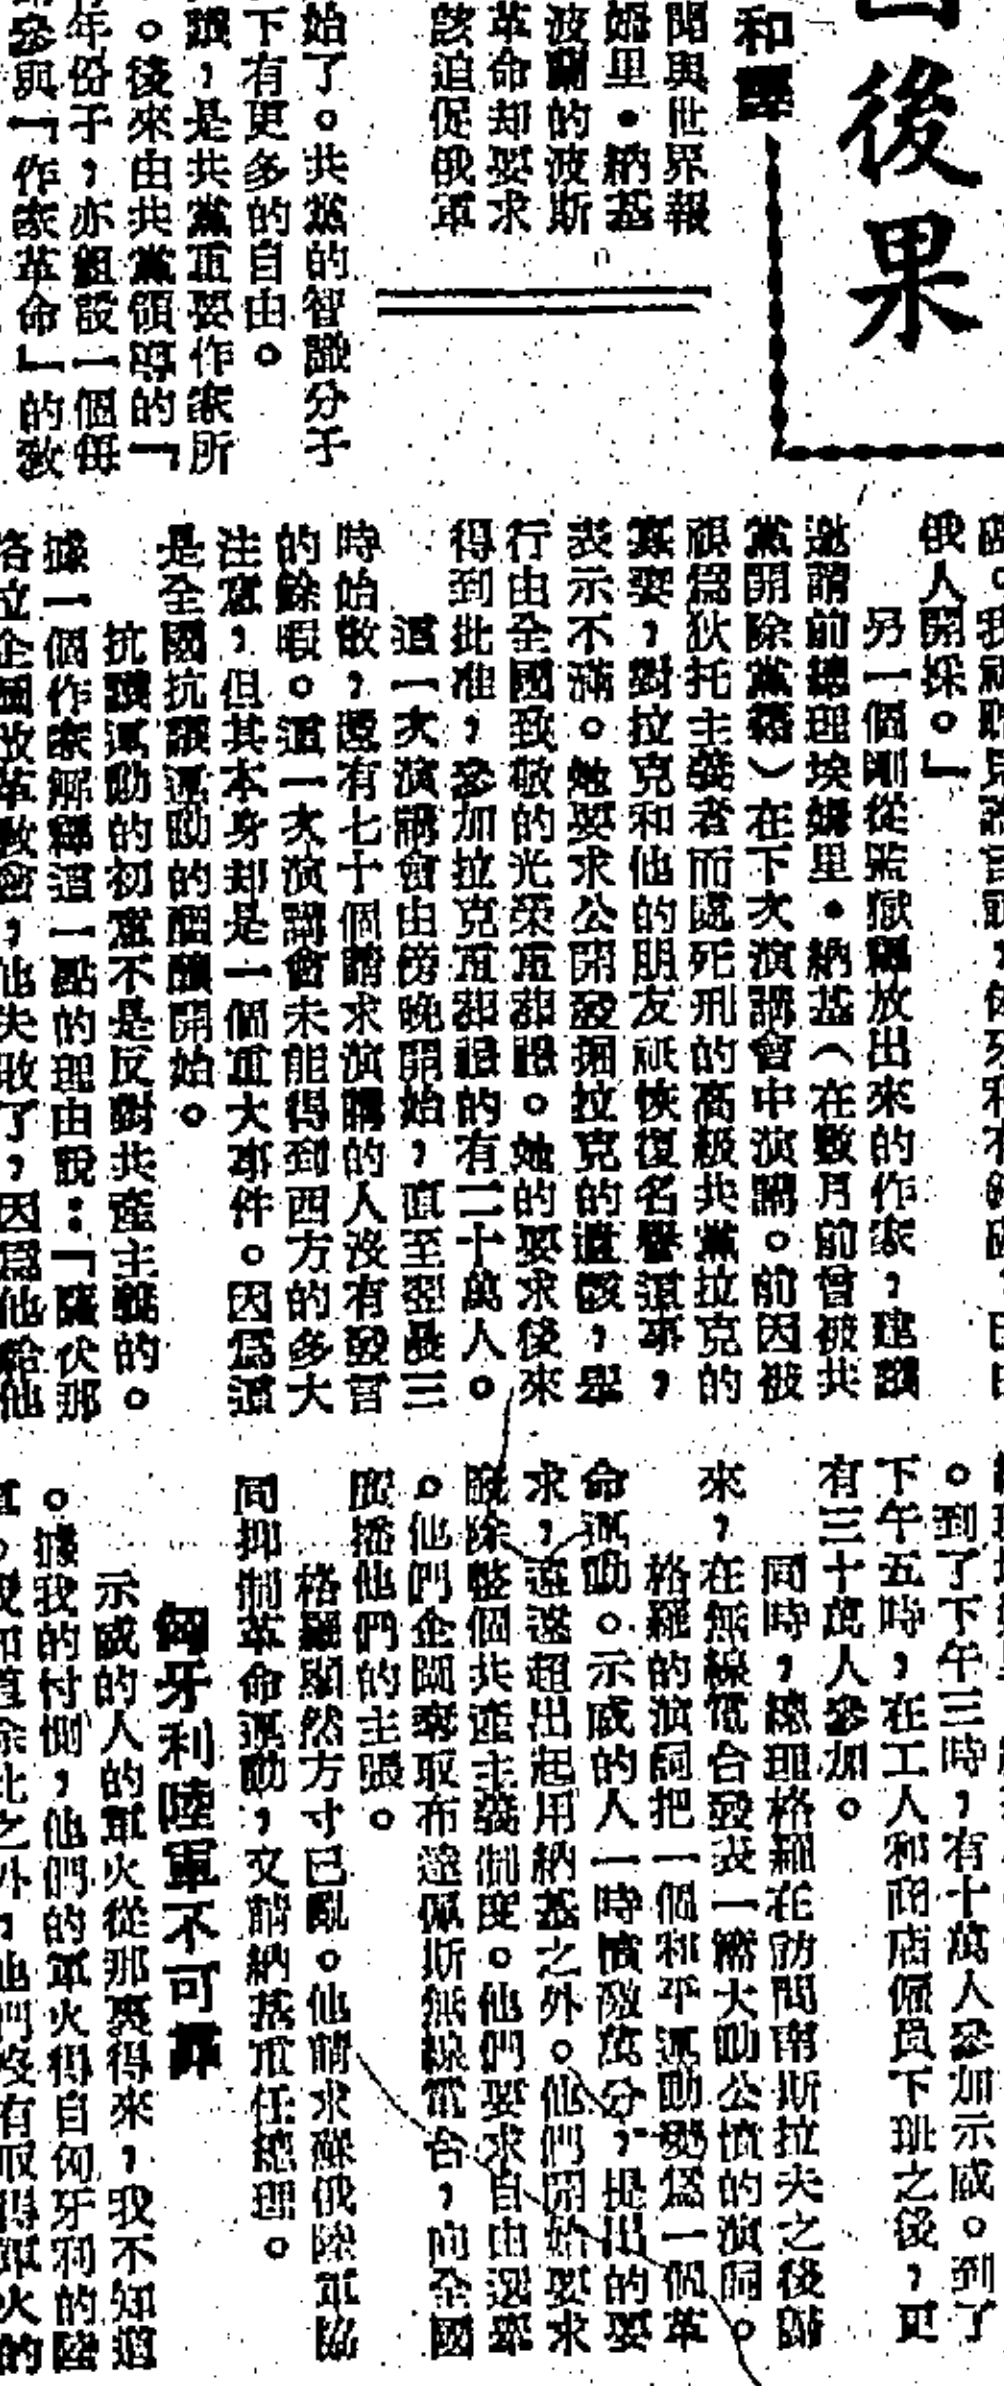 後果
和譯
聞與世界報
姆里•納基
波蘭的波斯
革命却要求
該迫促俄軍
始了。共黨的智識分子
下有更多的自由。
讀，是共黨重要作家所
。後來由共黨領導的「
年份子，亦組設一個每
參與「作家革命」的教
俄人開採。」
另一個剛從監獄釋放出來的作家，建議
邀請前總理埃姆里•納基（在數月前曾被共
黨開除黨籍）在下次演講會中演講。前因被
視爲狄托主義者而處死刑的高級共黨拉克的
寡妻，對拉克和他的朋友祇恢復名譽這事，
表示不滿。她要求公開發掘拉克的遺骸，舉
行由全國致敬的光榮重葬禮。她的要求後來
得到批准，參加拉克重葬禮的有二十萬人。
這一次演講會由傍晚開始，直至翌晨三
時始散，還有七十個請求演講的人沒有發言
的餘暇。這一次演講會未能得到西方的多大
注意，但其本身却是一個重大事件。因爲這
是全國抗議運動的醞釀開始。
抗議運動的初意不是反對共產主義的。
據一個作家解釋這一點的理由說：「薩伏那
格拉企圖改革教會，他失敗了，因爲他給他
。到了下午三時，有十萬人參加示威。到了
下午五時，在工人和商店僱員下班之後，更
有三十萬人參加。
同時，總理格羅在訪問南斯拉夫之後歸
來，在無線電台發表一篇大動公憤的演詞。
格羅的演詞把一個和平運動變爲一個革
命運動。示威的人一時憤激萬分，提出的要
求，遠遠超出起用納基之外。他們開始要求
廢除整個共產主義制度。他們要求自由選舉
。他們企圖奪取布達佩斯無線電台，向全國
廣播他們的主張。
格羅顯然方寸已亂。他請求蘇俄陸軍協
同抑制革命運動，又請納基重任總理。
匈牙利陸軍不可靠
示威的人的軍火從那裏得來，我不知道
。據我的忖惻，他們的軍火得自匈牙利的陸
軍。我知道除此之外，他們沒有取得軍火的